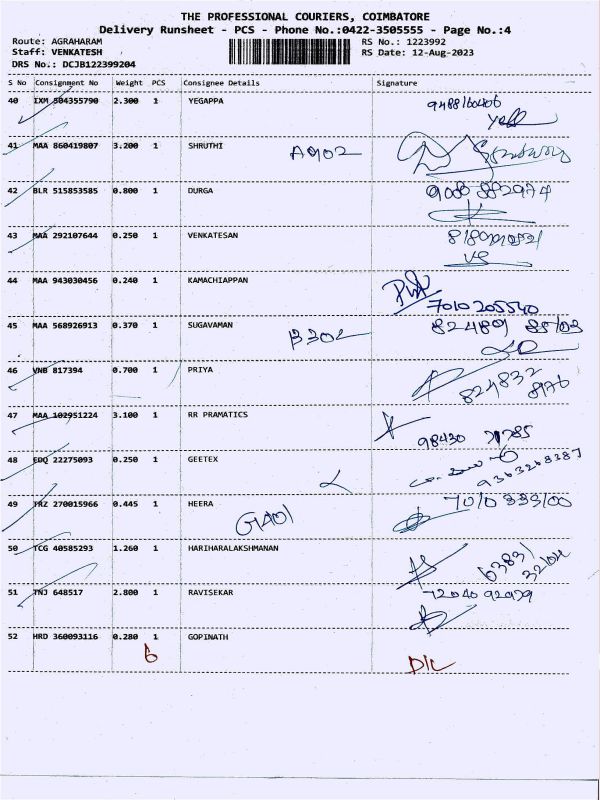 THE PROFESSIONAL COURIERS, COIMBATORE
Delivery Runsheet - PCS - Phone No.:0422-3505555 - Page No.:4
Route: AGRAHARAM RS No.: 1223992
Staff: VENKATESH RS Date: 12-Aug-2023
DRS No.: DCJB122399204
S No Consignment No Weight PCS Consignee Details Signature
40 IXM 504355790 2.300 1 YEGAPPA 9488160406
41 MAA 860419807 3.200 1 SHRUTHI A902
42 BLR 515853585 0.800 1 DURGA
43 MAA 292107644 0.250 1 VENKATESAN
44 MAA 943030456 0.240 1 KAMACHIAPPAN
7010205540
45 MAA 568926913 0.370 1 SUGAVAMAN
46 VNB 817394 0.700 1 PRIYA
824832
8176
47 MAA 102951224 3.100 1 RR PRAMATICS
98430 71785
48 EDQ 22275093 0.250 1 GEETEX
9363268387
49 TRZ 270015966 0.445 1 HEERA G401
50 TCG 40585293 1.260 1 HARIHARALAKSHMANAN
51 TNJ 648517 2.800 1 RAVISEKAR 72040 92979
52 HRD 360093116 0.280 1 GOPINATH
6 D/L